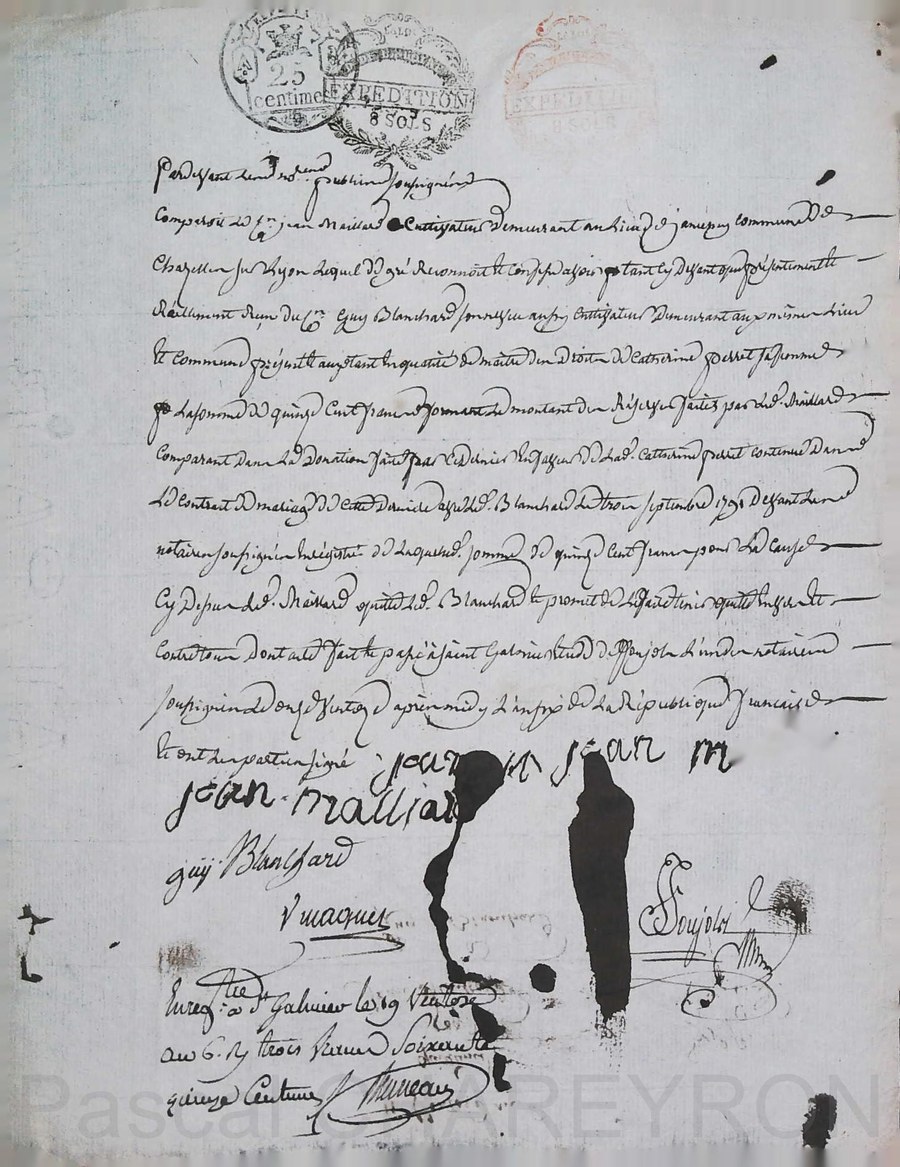 25
centimes
EXPEDITION
8 SOLS
EXPEDITION
8 SOLS
Pardevant Les nores publics soussignés
Comparoit Le Cen jean Maillard Cultivateur Demeurant au Lieu de commune De
Chazelles sur Lyon Lequel de gré Reconnoit et Confesse avoir cy Devant que présentement et
Réellement Reçu du Cen Guy Blanchard son neveu aussy Cultivateur Demeurant au même Lieu
et commune présent et acceptant en qualité de maitre des Droits de Catherine perret sa femme
La somme de quinze Cent francs formant Le montant des Réserves faites par Led. Maillard
Comparant Dans La Donation faite par Ce dernier en faveur de Lad. Catherine perret contenue Dans
Le Contrat de mariage de Cette Derniere avec Led. Blanchard Le trois septembre 1791 Devant Les
notaires soussignés Enregistré de Laquelle somme de quinze Cent francs pour La Cause
Cy Dessus Led. Maillard quitte Led. Blanchard et promet de Le faire tenir quitte Envers et
Contre tous Dont acte fait et passé à saint Galmier Etude de L'un des notaires
soussignés Le onze Ventose après midy L'an six de La République française
et ont Les parties signé jean m jean m
jean malliar
guy Blanchard
Vmaquet
Enregtré a St Galmier le 19 Ventose
an 6. R trois francs soixante
quinze Centimes
Pascal CHAREYRON